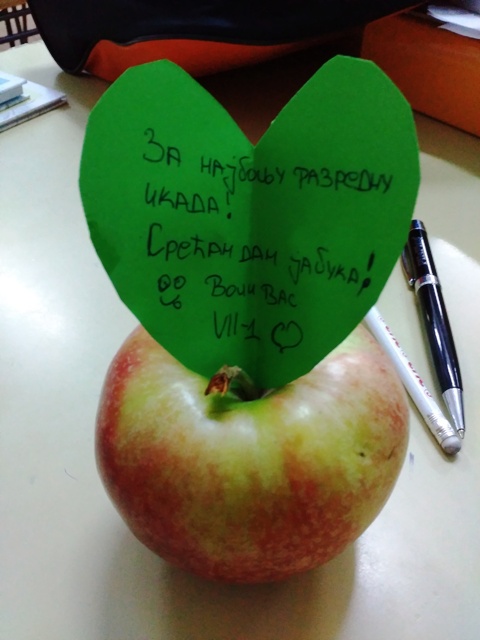 За најбољу разредну
икада!
Срећан дан јабука!
Воли вас
VII-1